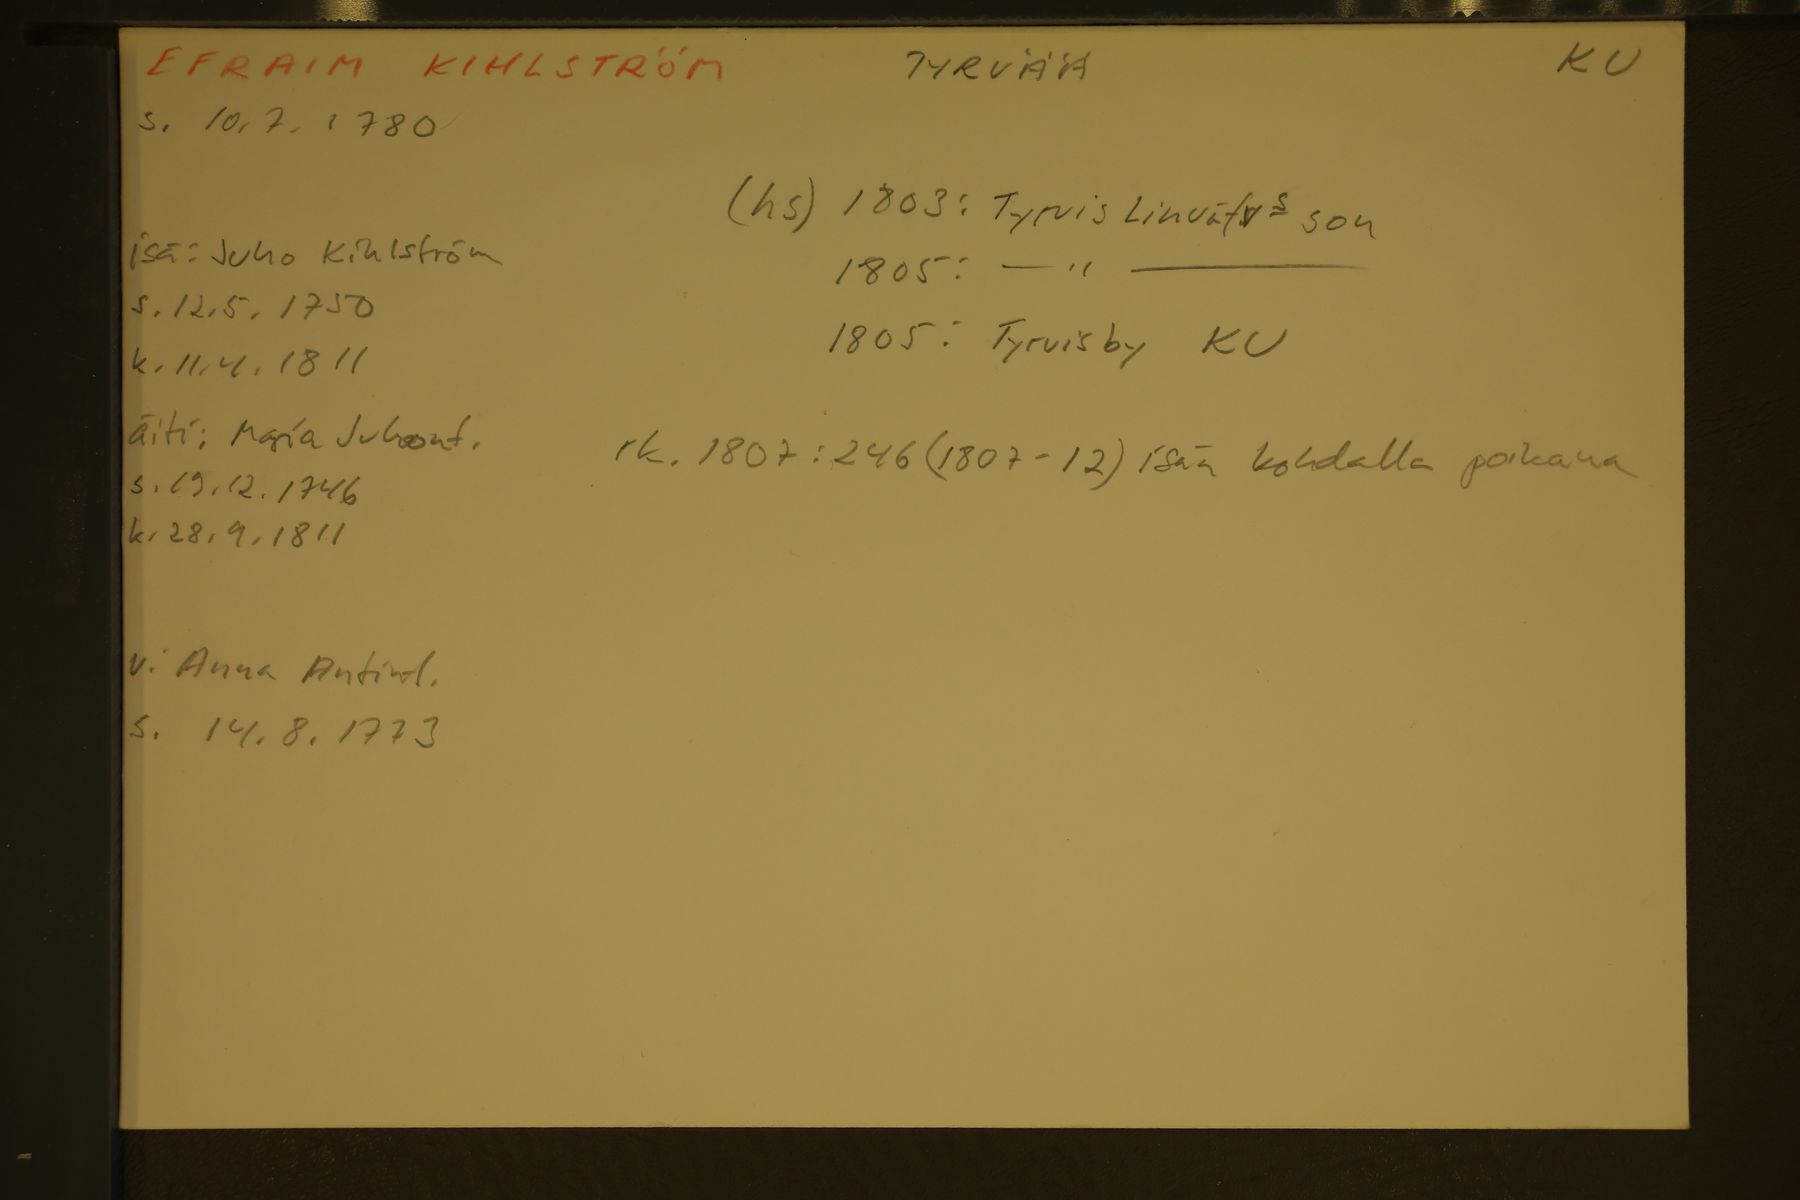 EFRAIM KIHLSTRÖM TYRVÄÄ KU
s. 10.7.1780
(hs) 1803: Tyrvis Linväfv s son
isä: Juho Kihlström
1805: —"—
s. 12.5.1750
1805: Tyrvisby KU
k. 11.4.1811
äiti: Maria Juhont.
rk. 1807:246 (1807-12) isän kohdalla poikana
s. 19.12.1746
k. 28.9.1811
v: Anna Antint.
s. 14.8.1773